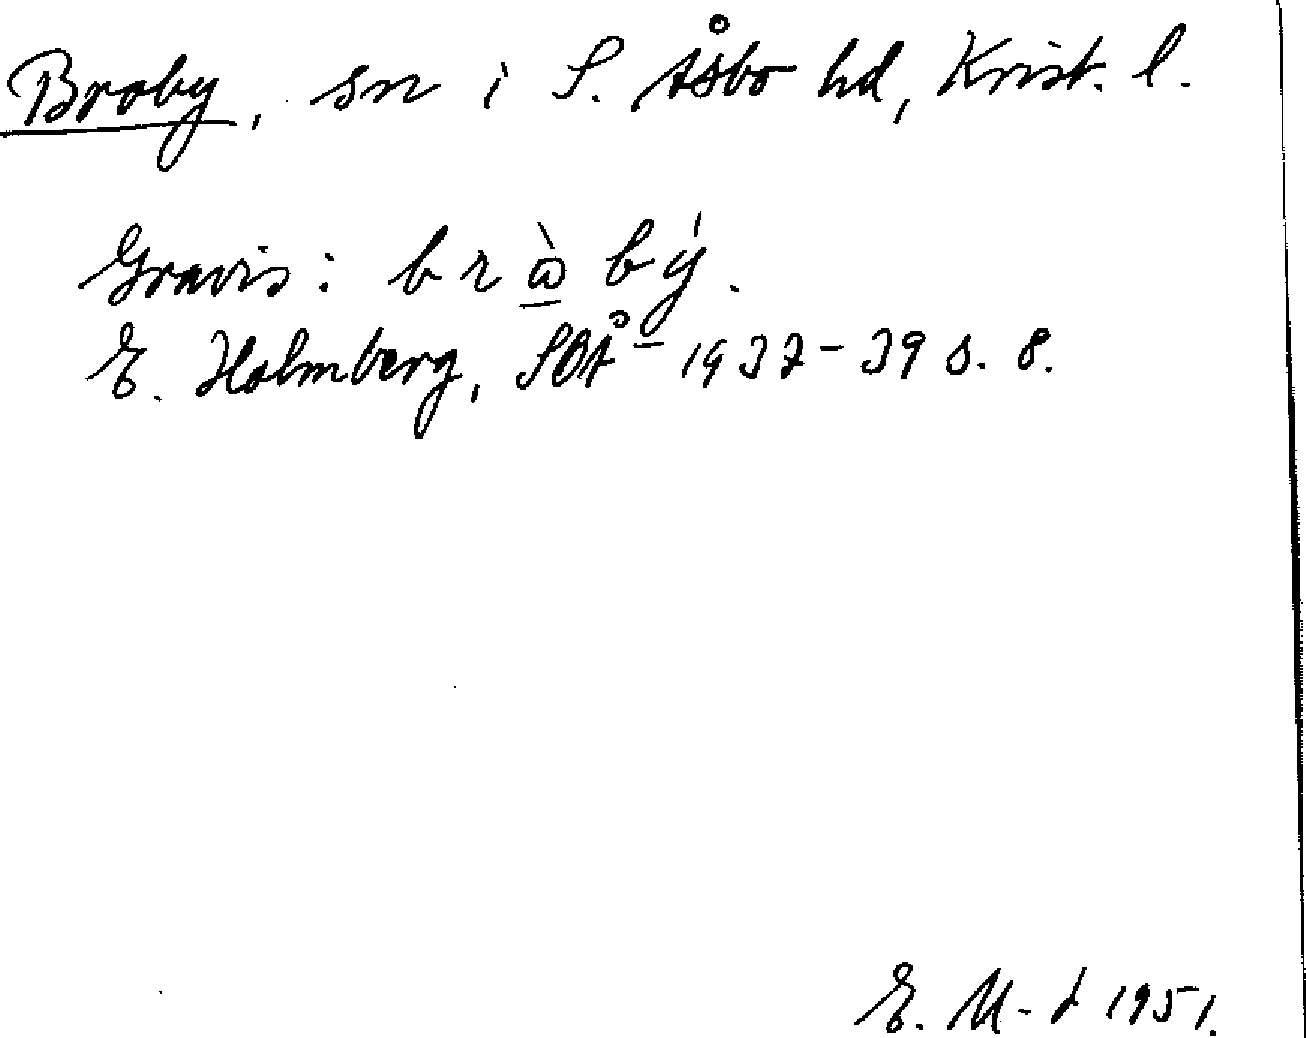 Broby, sn i S. Åsbo hd, Krist. l.
Gravis: bràbý.
E. Holmberg, SOÅ 1937-39 s. 8.
E. M-d 1951.